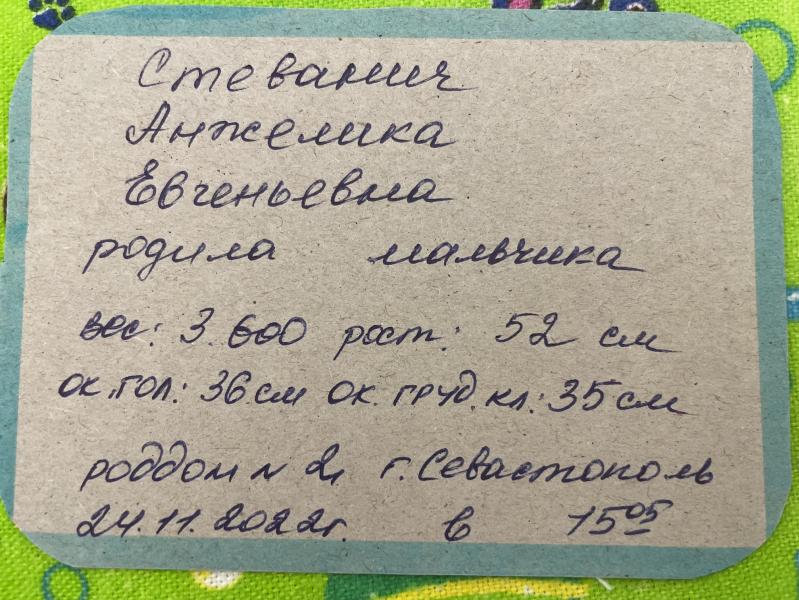 Стеванич
Анжелика
Евгеньевна
родила мальчика
вес: 3.600 рост: 52 см
ок.гол.: 36см ок.груд.кл.: 35см
роддом N 2 г.Севастополь
24.11.2022г. в 15 05